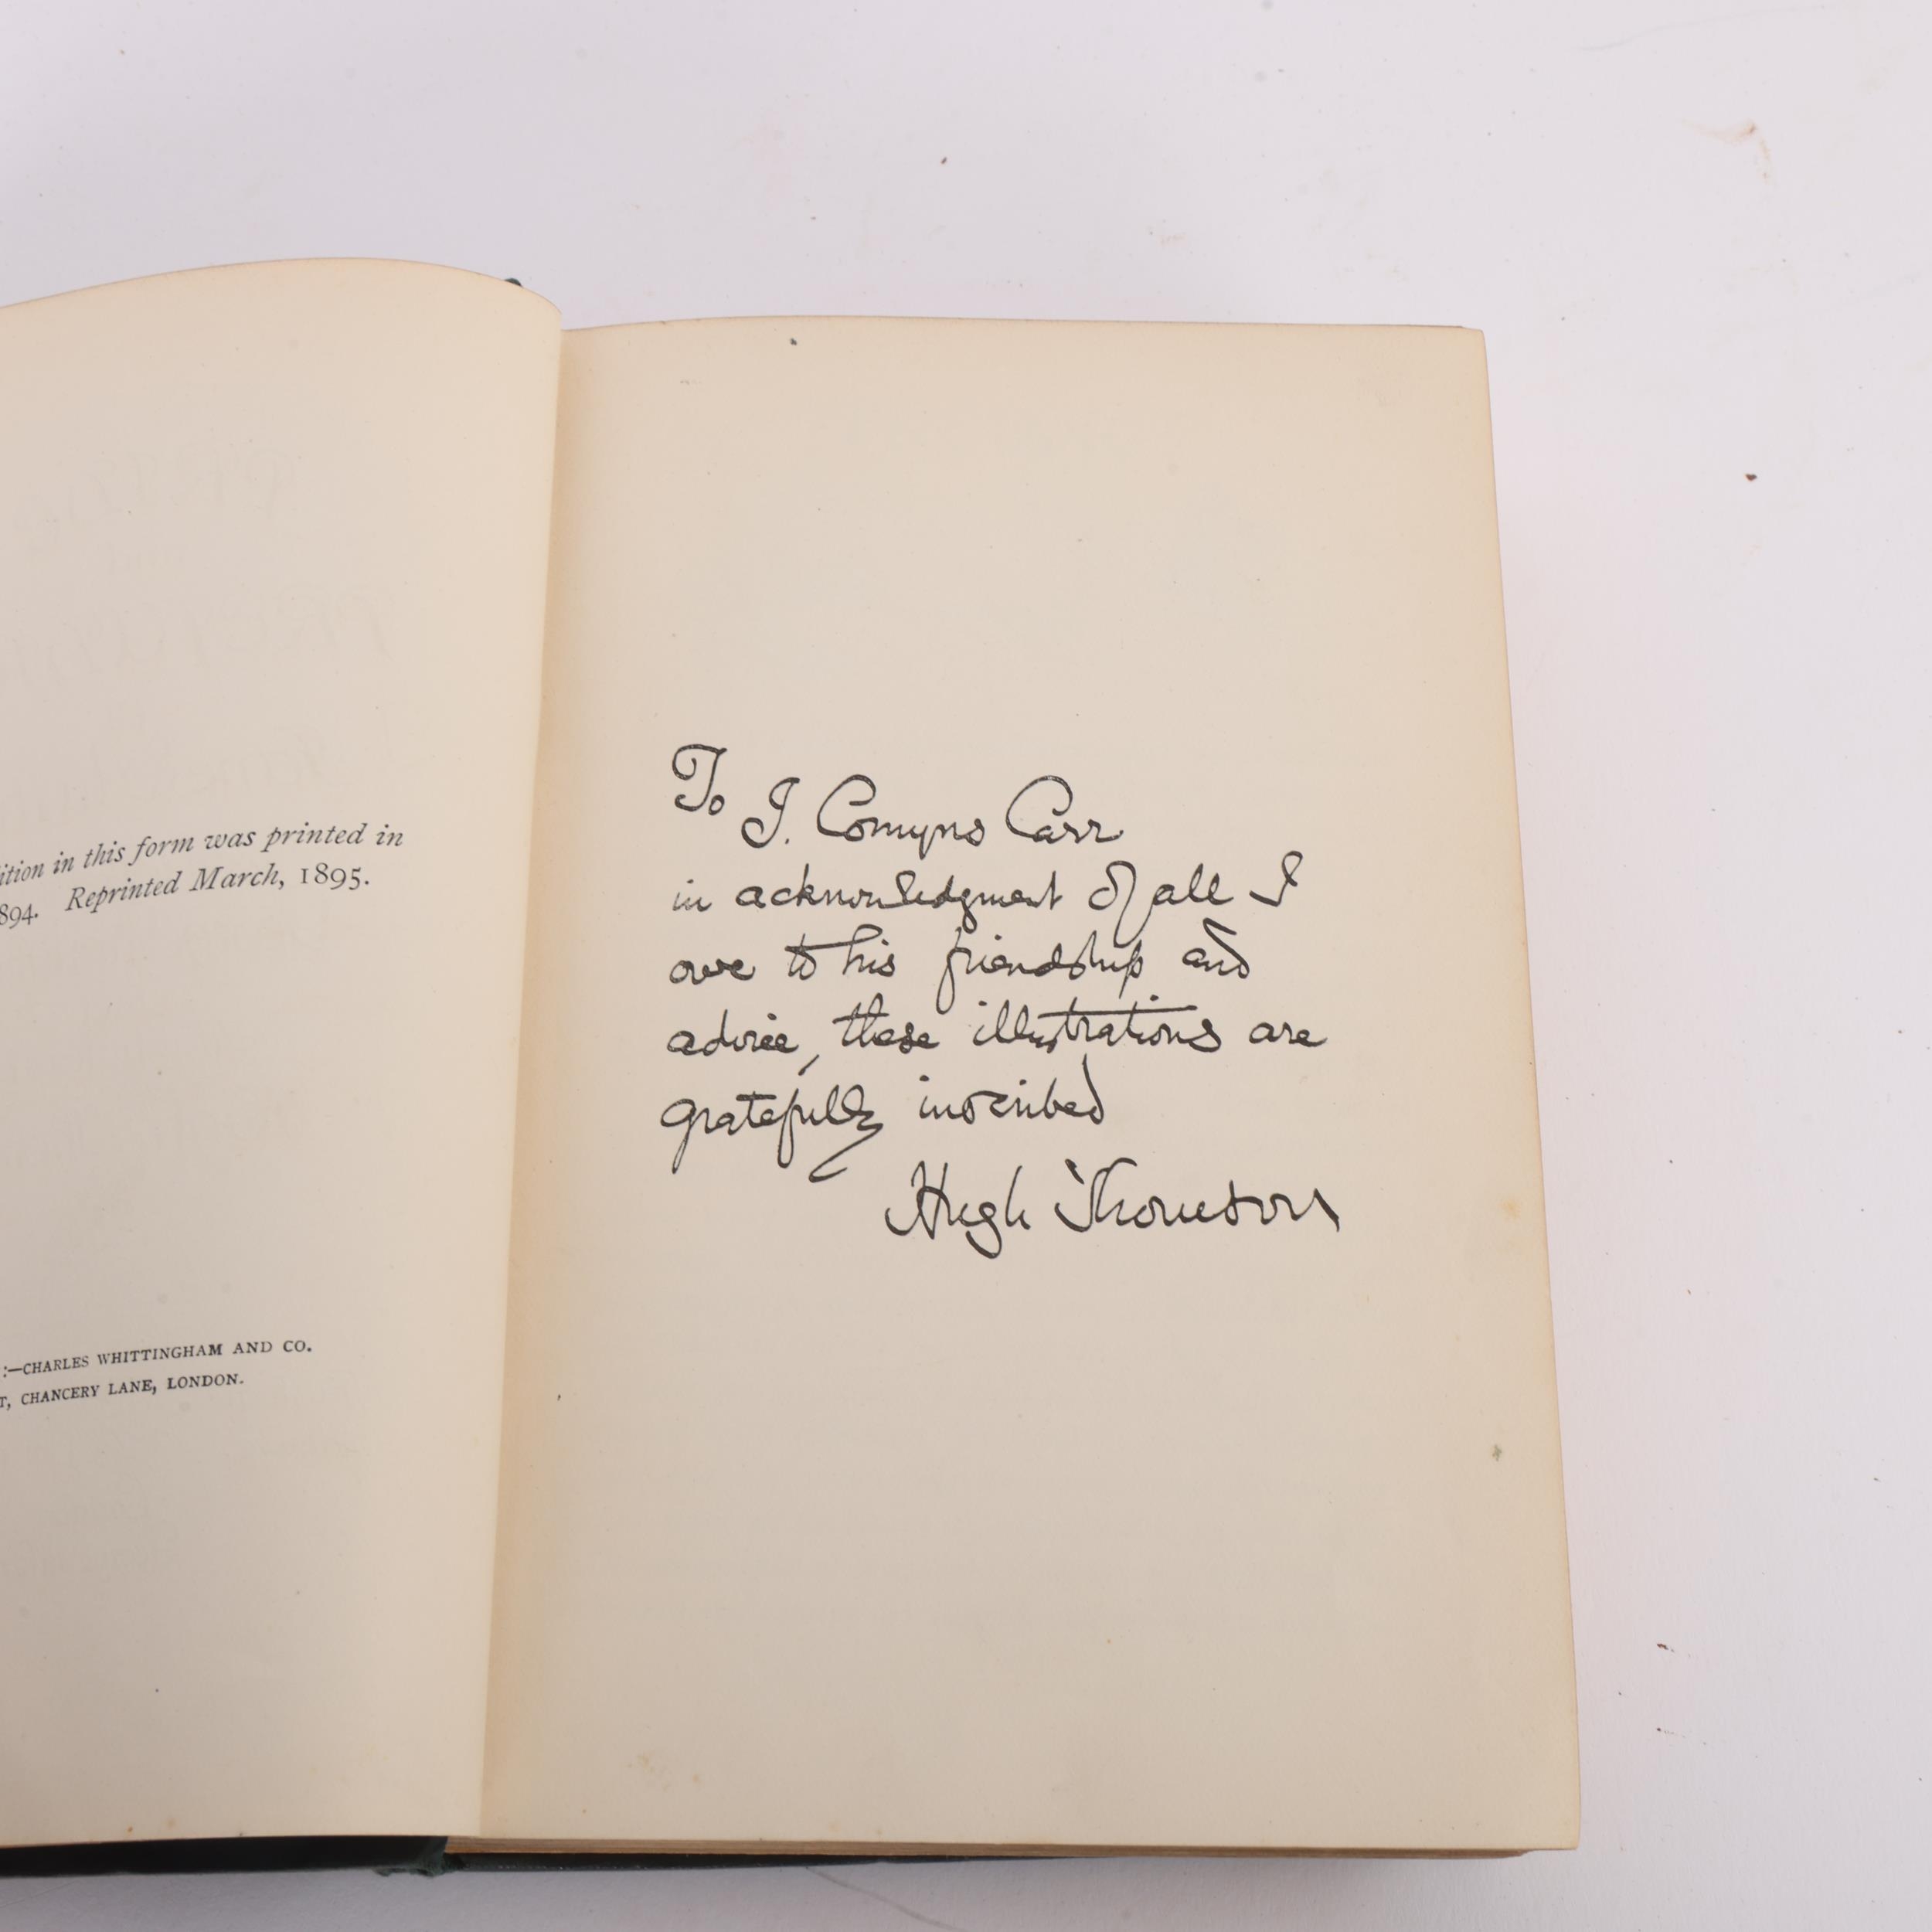 ition in this form was printed in
894. Reprinted March, 1895.
:—CHARLES WHITTINGHAM AND CO.
T, CHANCERY LANE, LONDON.
To J. Comyns Carr
in acknowledgment of all I
owe to his friendship and
advice, these illustrations are
gratefully inscribed
Hugh Thomson